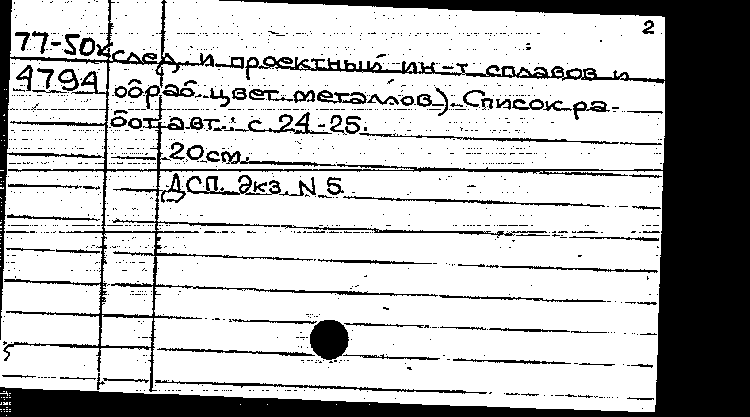 2
77-50к след. и проектный ин-т сплавов и
4794 обраб. цвет. металлов). Список ра-
бот авт.: с. 24-25.
20 см.
ДСП. Экз. N 5